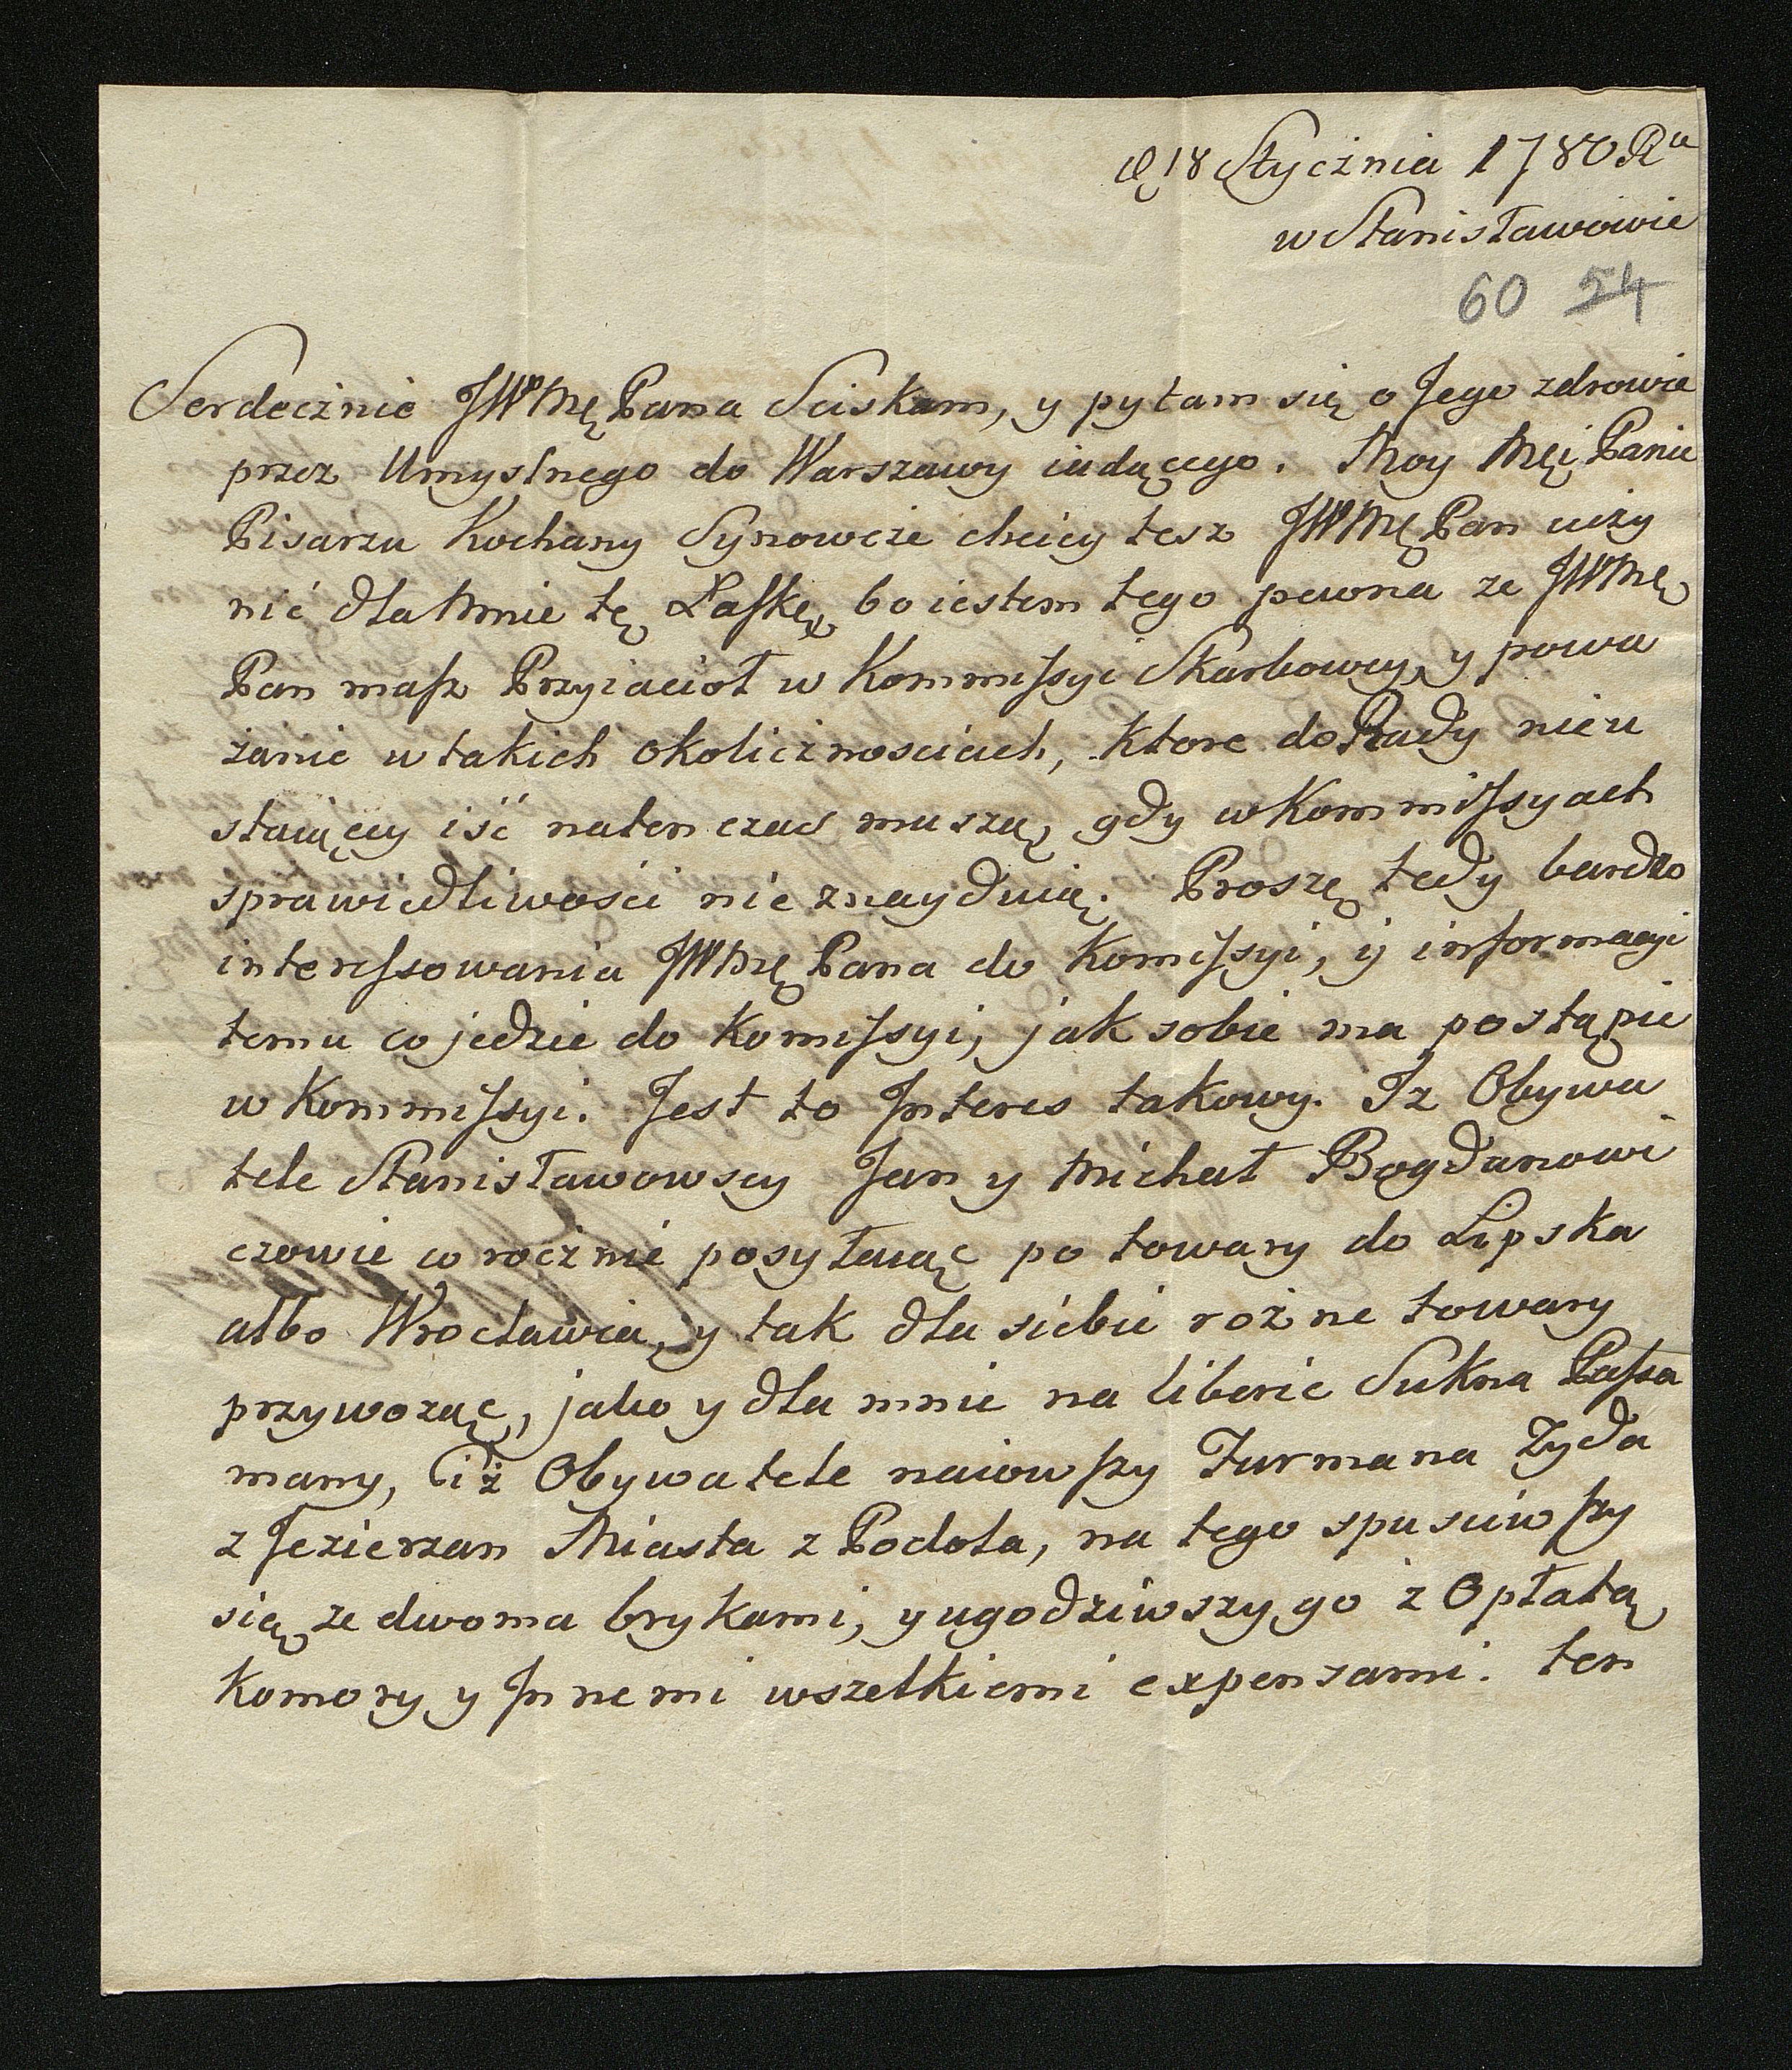 d 18 Stycżnia 1780 Ru
w Stanisławowie
60 54
Serdecżnie JWMę Pana Sciskam, y pytam się o Jego zdrowie
przez Umyslnego do Warszawy iadącego. Moy Męi Panie
Pisarzu Kochany Synowcże chciey tesz JWMę Pan ucży
nić dla Mnie tę Łaskę, bo iestem tego pewna ze JWMę
Pan masz Przyiacioł w Kommissyi Skarbowey, y powa
żanie w takich okolicżnosciach, Ktore do Rady nieu
staiącey iść natenczas muszą, gdy w Kommissyach
sprawiedliwości nie znayduią. Proszę tedy bardzo
interessowania JWMę Pana do Komissyi, y informacyi
temu co jedzie do Komissyi, jak sobie ma postąpic
w Kommissyi. Jest to Jnteres takowy. Iz Obywa
tele Stanisławowscy Jan y Michał Bogdanowi
czowie corocżnie posyłaiąc po towary do Lipska
albo Wrocławia, y tak dla siebie rożne towary
przywożąc, jako y dla mnie na liberie Sukna Passa
many, Ciż Obywatele naiowszy Furmana Żyda
z Jezierzan Miasta z Podola, na tego spusciwszy
się ze dwoma brykami, y ugodziwszy go z Opłatą
Komory y Jnnemi wszelkiemi expensami. ten